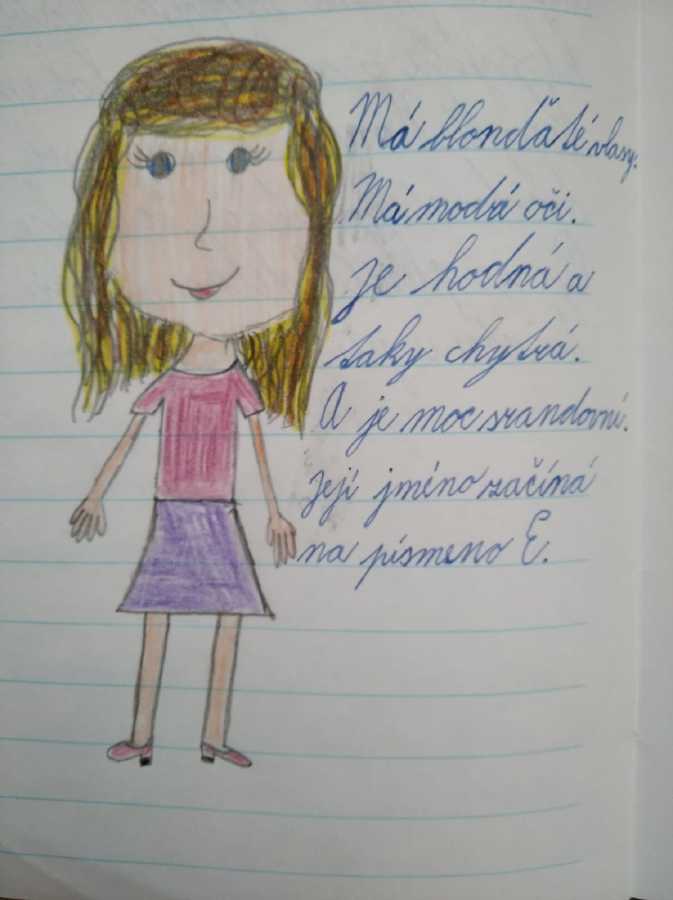 Má blonďaté vlasy.
Má modrá oči.
je hodná a
taky chytrá.
A je moc srandovní.
její jméno začíná
na písmeno E.